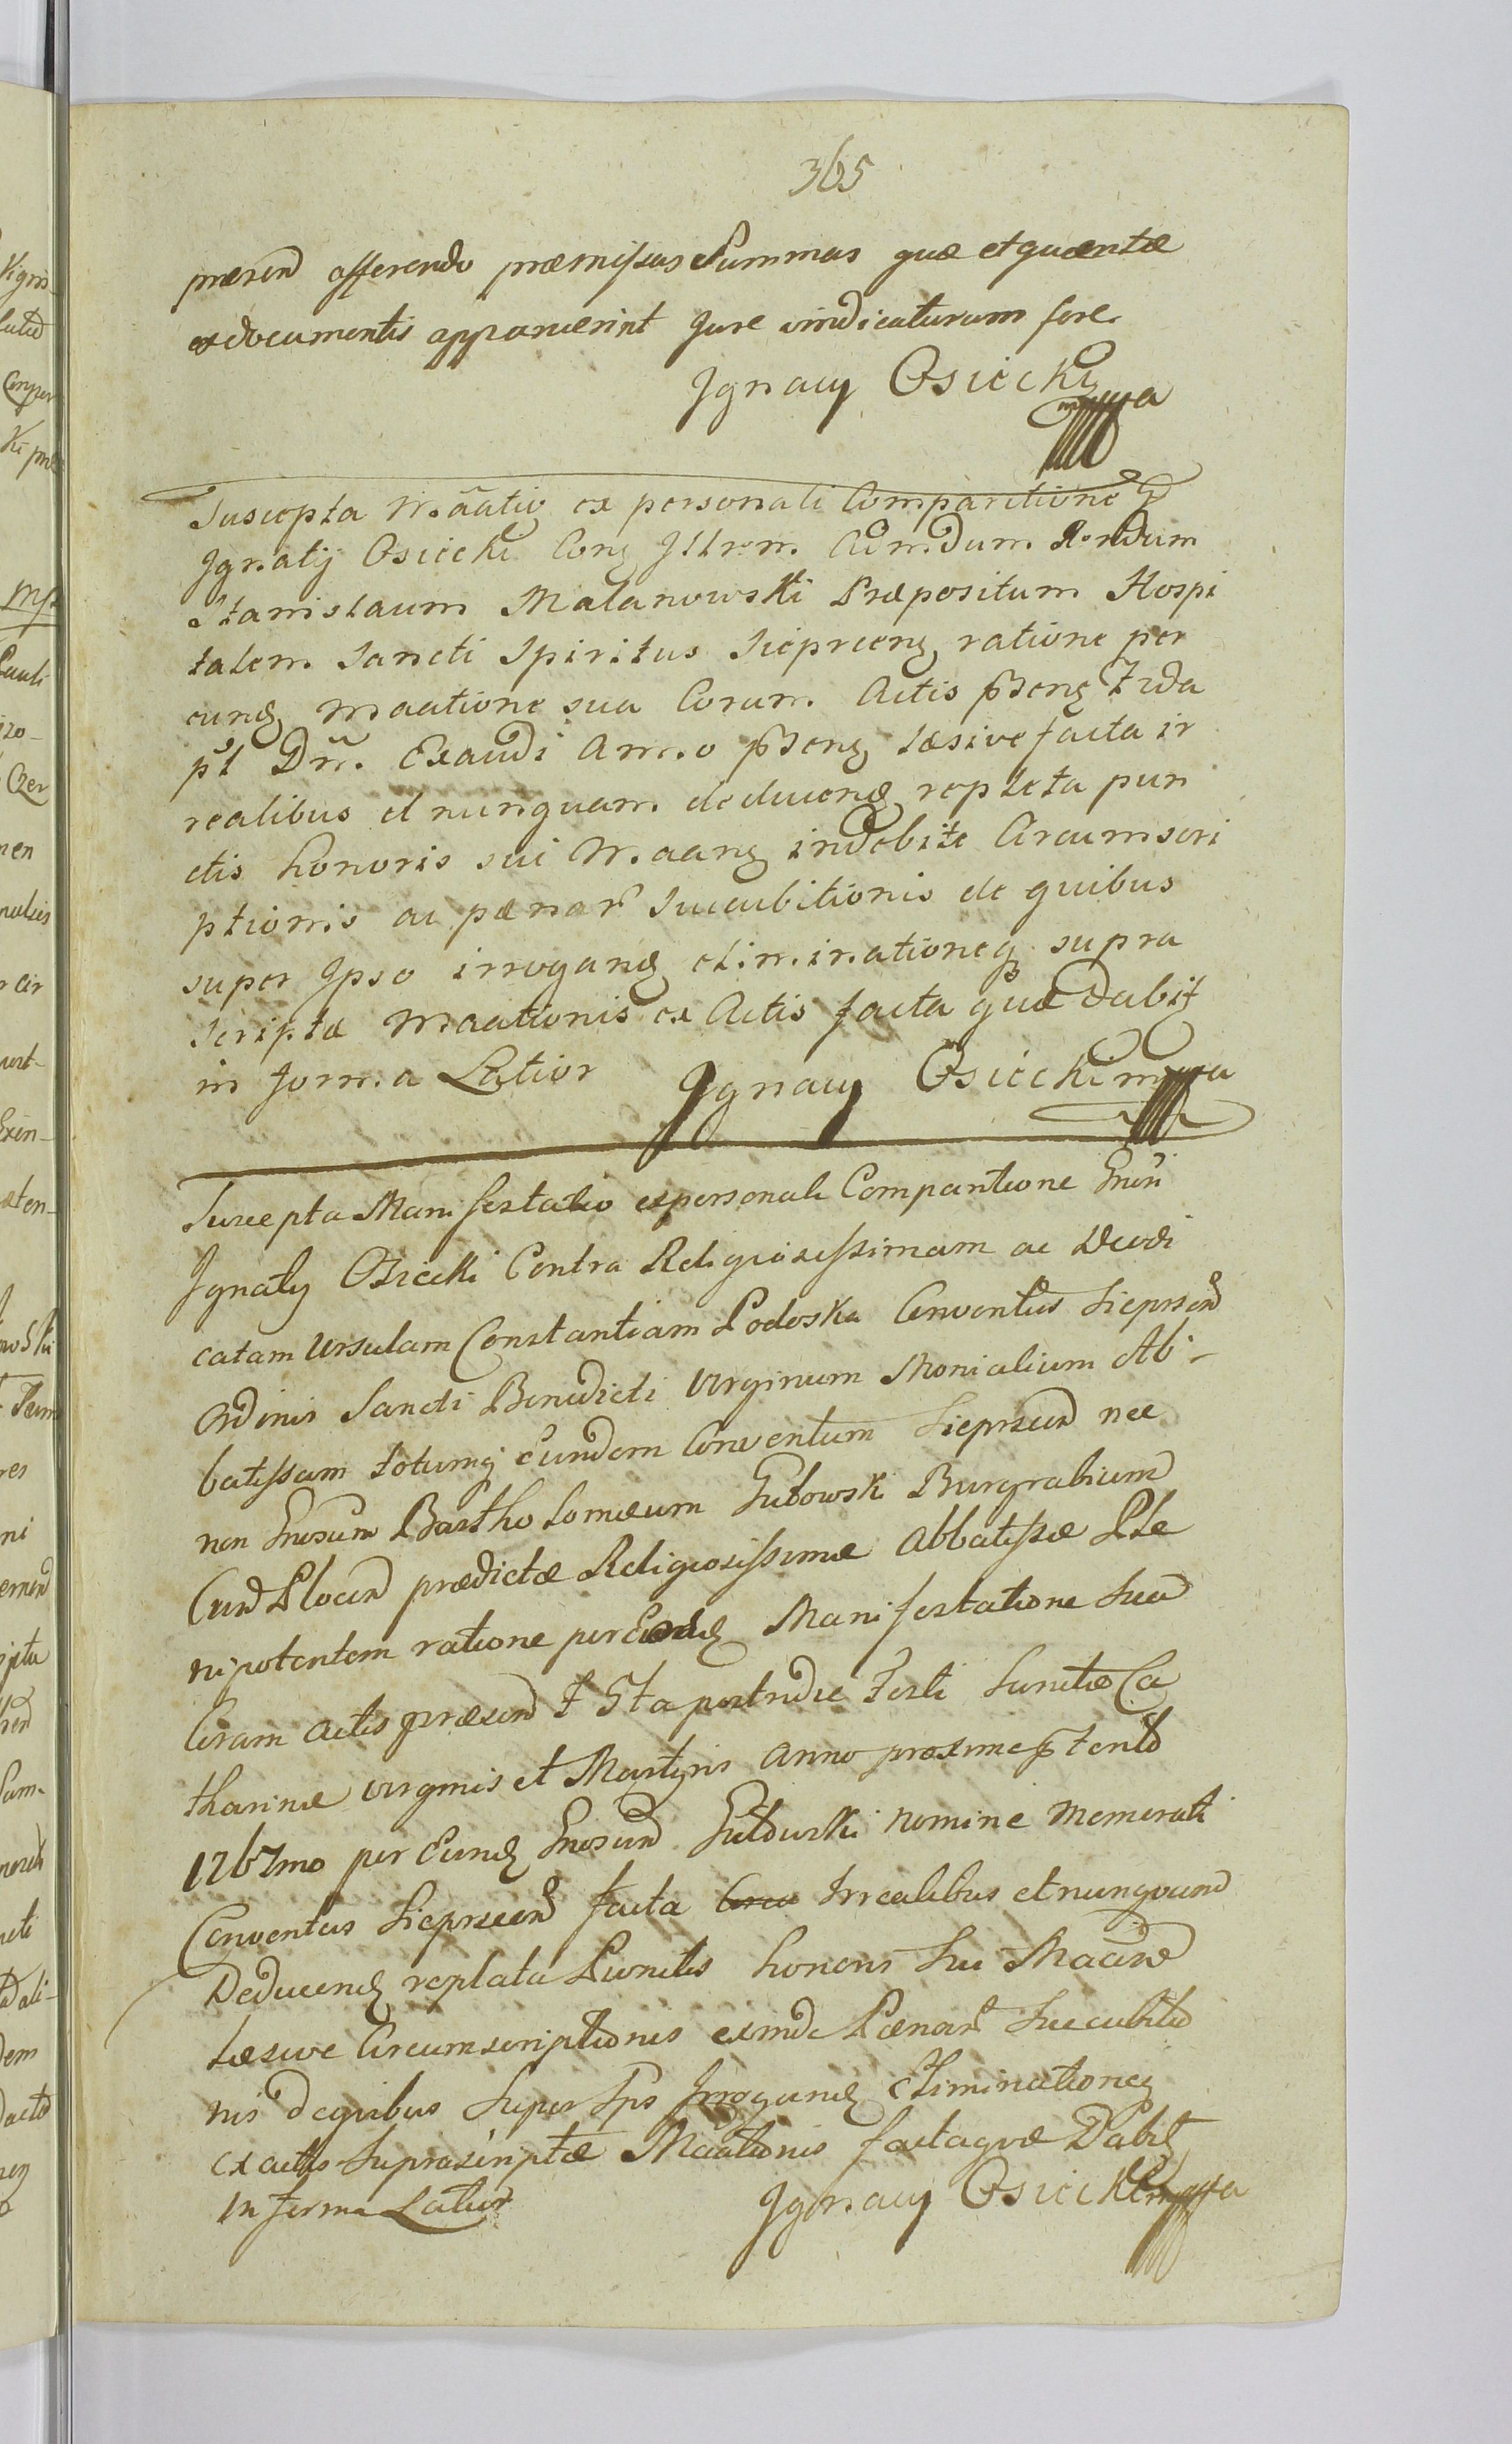 365
præsen offerendo præmissas Summas quæ et quæntæ
ex documentis apparuerint Jure vindicaturum fore
Jgnacy Osiecki mppa
Suscepta Maãtio ex personali Comparitione G
Jgnatij Osiecki Con Jllrem. Admdum. Rendum
Stanislaum Malanowski Præpositum Hospi
talem. Sancti Spiritus Sieprcen ratione per
eund Maatione sua Coram. Actis pñten Frda
pt Dñ. Exaudi Anno pñten læsive facta ir
realibus et nunquam. deducend repleta pun
ctis honoris sui Maan indebite Circumscri
ptionis ac pænar Succubitionis de quibus
super Jpso irrogand eliminationeq supra
scriptæ Maationis ex Actis facta quæ Dabit
in forma Latior Jgnacy Osiecki mppa
Suscepta Manifestatio ex personali Comparitione Gnsi
Jgnatij Osiecki Contra Religiosissimam ac Deodi
catam Ursulam Constantiam Podoska Conventus Sieprcen
Ordinis Sancti Benedicti Virginum Monialium Ab-
batissam totumq eundem Conventum Sieprcen nec
non Gnosum Bartholomæum Gutowski Burgrabium
Cun Plocen prædictæ Religiosissimæ Abbatissæ Ple
nipotentem ratione per Eund Manifestatione Sua
Coram Actis præsen F 5ta postridie Festi Sanctæ Ca
tharinæ Virginis et Martyris Anno proxime
1767mo per Eund Gnosum nomine Memorati
Conventus Sieprcen facta Irrealibus et nunquam
Deducend repleta Punctis honoris Sui Maan
læsive Circumscriptionis exinde Pænar Succubitio
nis de quibus Super Ipso Jrrogand Eliminationeq
ex actis Suprascriptæ Maationis facta quæ Dabit
in forma Latior Jgnacy Osiecki mppa